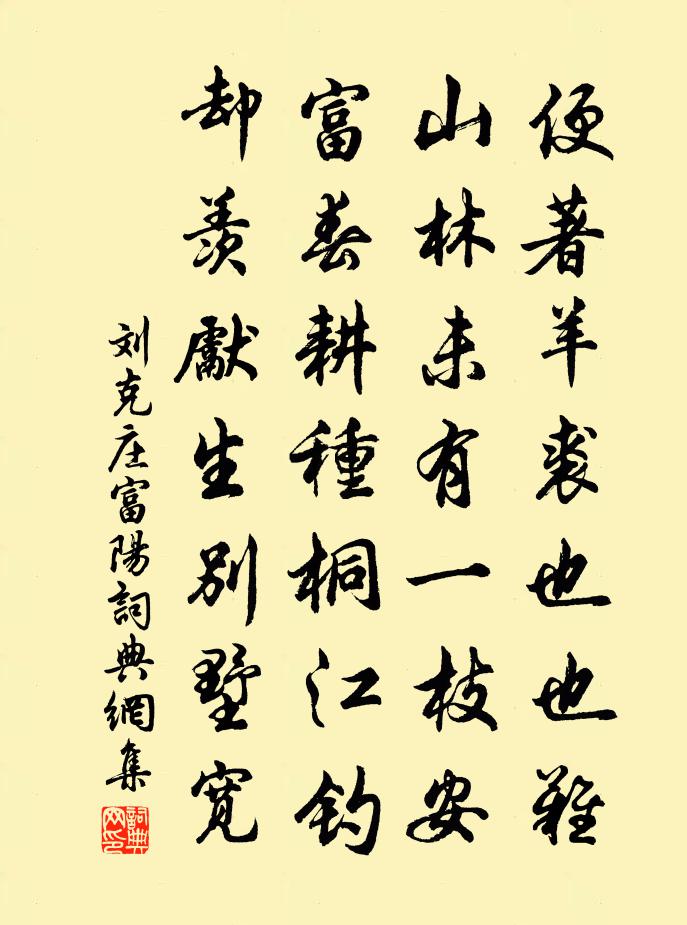 便著羊裘也也難
山林未有一枝安
富春耕種桐江釣
却羨獻生別墅寬
刘克庄富陽詞典網集
詞典網印